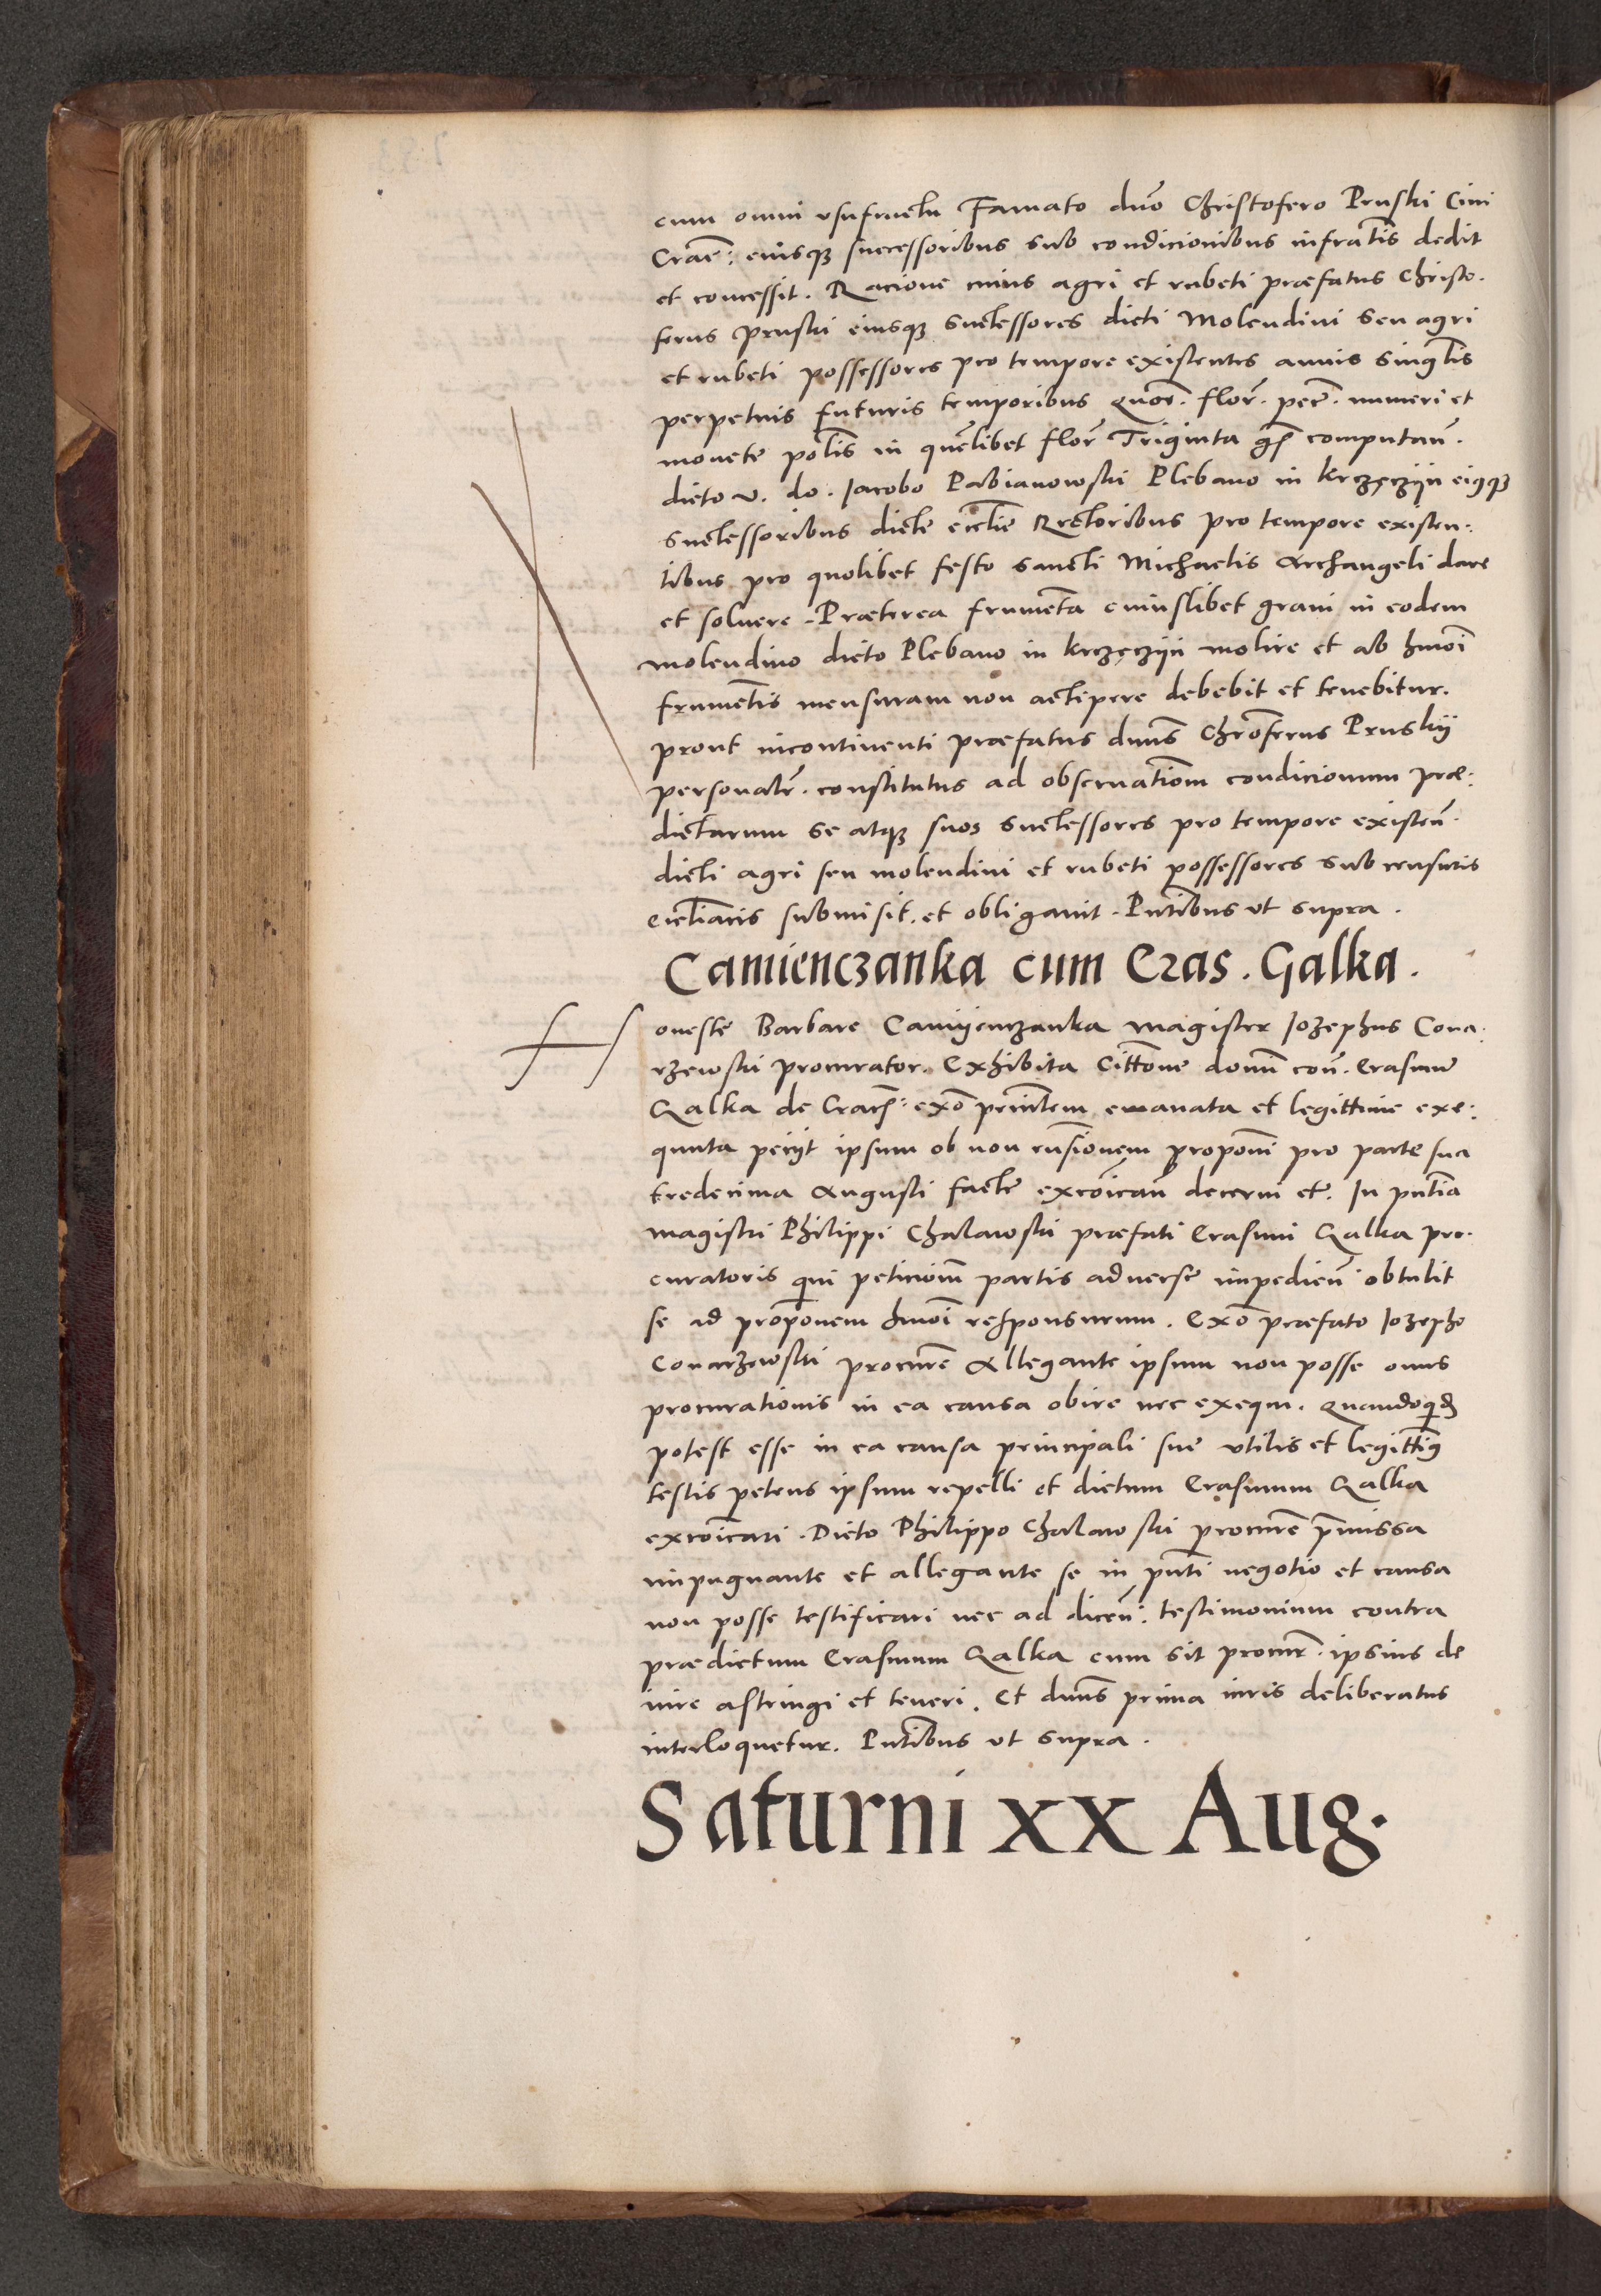 cum omni vsufructu Famato dno Christofero Pruski Ciui
Crac̄: eiusq3 successoribus sub condicionibus infra͞tis dedit
et concessit. Racione cuius agri et rubeti præfatus Christo.
ferus Pruski eiusq3 successores dicti Molendini seu agri
et rubeti possessores pro tempore existentes annis sing͞lis
perpetuis futuris temporibus quor̄. flor̄. pec̄. numeri et
monetę pol͞is in quēlibet flor̄ Triginta gr̄ computan̄.
dicto v. do. Iacobo Pabianowski Plebano in Krzęczÿn eiq3
successoribus dictę ecc͞lię Rectoribus pro tempore existen:
tibus pro quolibet festo sancti Michaelis Archangeli dare
et soluere. Præterea frumēta cuiuslibet grani in eodem
molendino dicto Plebano in Krzęczÿn molire et ab hm̄oi
frumētis mensuram non accipere debebit et tenebitur.
prout incontinenti præfatus dnūs Chrōferus Pruskÿ
personalr̄. constitutus ad obseruatiōm condicionum præ:
dictarum se atq3 suos successores pro tempore existen̄.
dicti agri seu molendini et rubeti possessores sub censuris
ecc͞liacis submisit. et obligauit. Pn̄tibus vt supra.
Camienczanka cum Eras. Galka.
H
onestę Barbare Camÿenczanka magister Iozephus Cona:
rzewski procurator. Exhibita Cittōne domi͞ con̄. Erasmū
Galka de Crac̄: exō prntem emanata et legittime exe:
quuta petijt ipsum ob non rn̄sionem propōni pro parte sua
tredecima Augusti factę excōican̄ decerni etc. In pn̄tia
magistri Philippi Chalawski præfati Erasmi Galka pro.
curatoris qui peticiōm partis aduersę impedien̄. obtulit
se ad propōnem hm̄oi responsurum. Exō præfato Iozepho
Conarzewski procurē Allegante ipsum non posse onus
procurationis in ea causa obire nec exequi. Quandoqd
potest esse in ea causa principali suę vtilis et legitti9
testis petens ipsum repelli et dictum Erasmum Galka
excōicari. Dicto Philippo Chalawski procurē p̄missa
impugnante et allegante se in pn̄ti negotio et causa
non posse testificari nec ad dicen̄: testimonium contra
prædictum Erasmum Galka cum sit procur̄. ipsius de
iure astringi et teneri. Et dnūs prima iuris deliberatus
interloquetur. Pn̄tibus vt supra.
Saturni xx Aug.